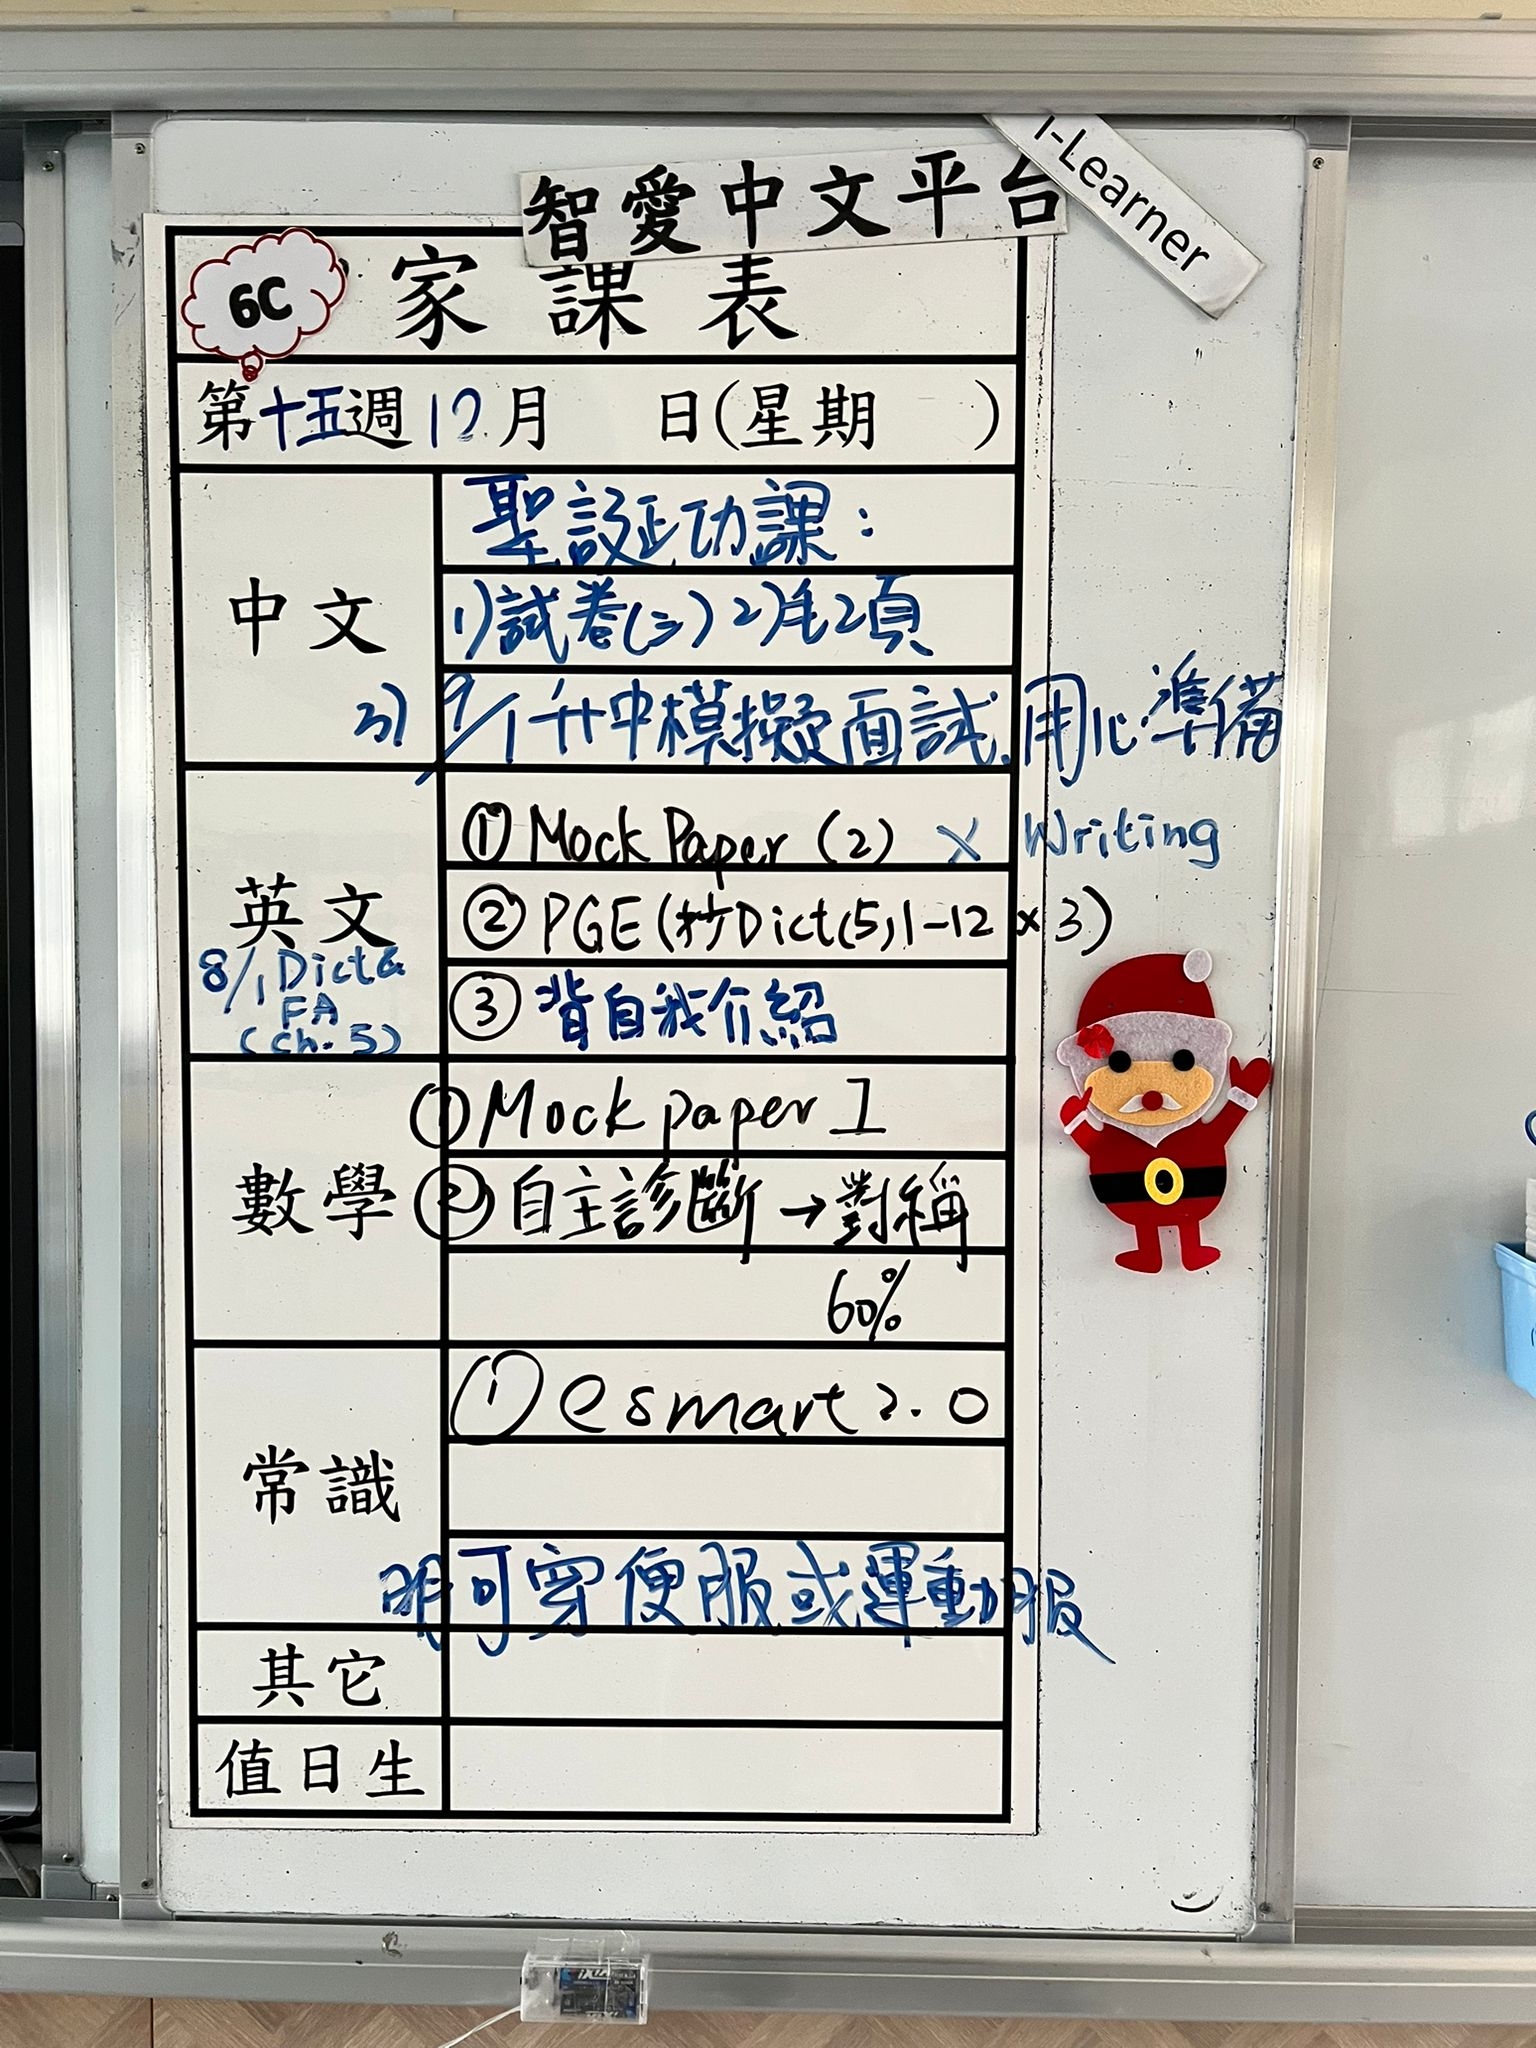 智愛中文平台
i-Learner
6C
家課表
第十五週12月 日(星期 )
中文
聖誕功課:
1)試卷(三) 2)毛2頁
3) 9/1升中模擬面試,用心準備
英文
8/1 Dict &
FA
(ch. 5)
① Mock Paper (2) x Writing
② PGE (抄Dict(5, 1-12 x 3)
③ 背自我介紹
數學
① Mock paper 1
② 自主診斷 → 對稱
60%
常識
① esmart 2.0
明可穿便服或運動服
其它
值日生